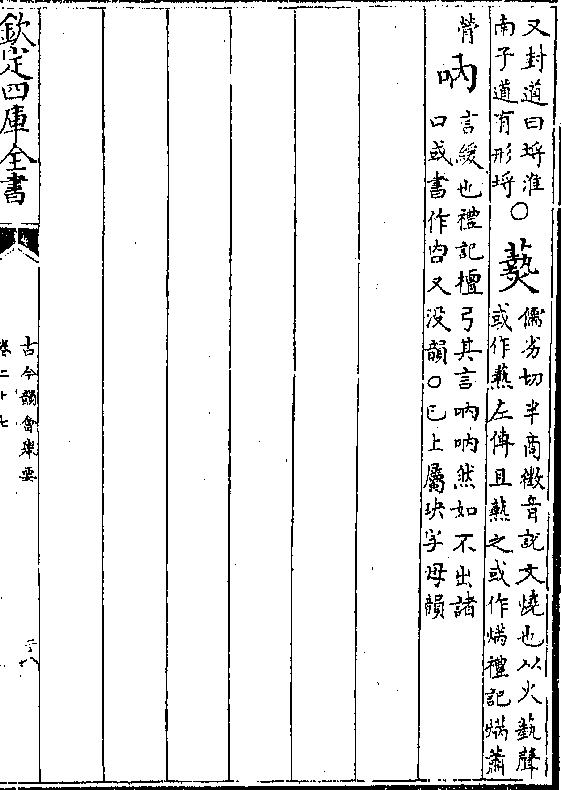 又封道曰埒淮
南子道有形埒
○爇
儒劣切半商徴音說文燒也从火蓺聲
或作爇左傳且爇之或作焫禮記焫蕭
膋
吶
言緩也禮記檀弓其言吶吶然如不出諸
口或書作㕯又没韻○已上屬玦字母韻
欽定四庫全書
古今韻會舉要
卷二十七